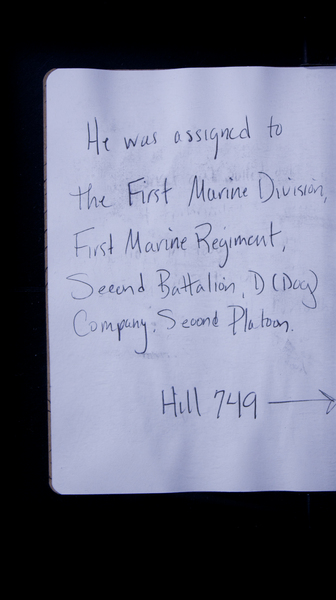 He was assigned to
the First Marine Division,
First Marine Regiment,
Second Battalion, D (Dog)
Company, Second Platoon.
Hill 749